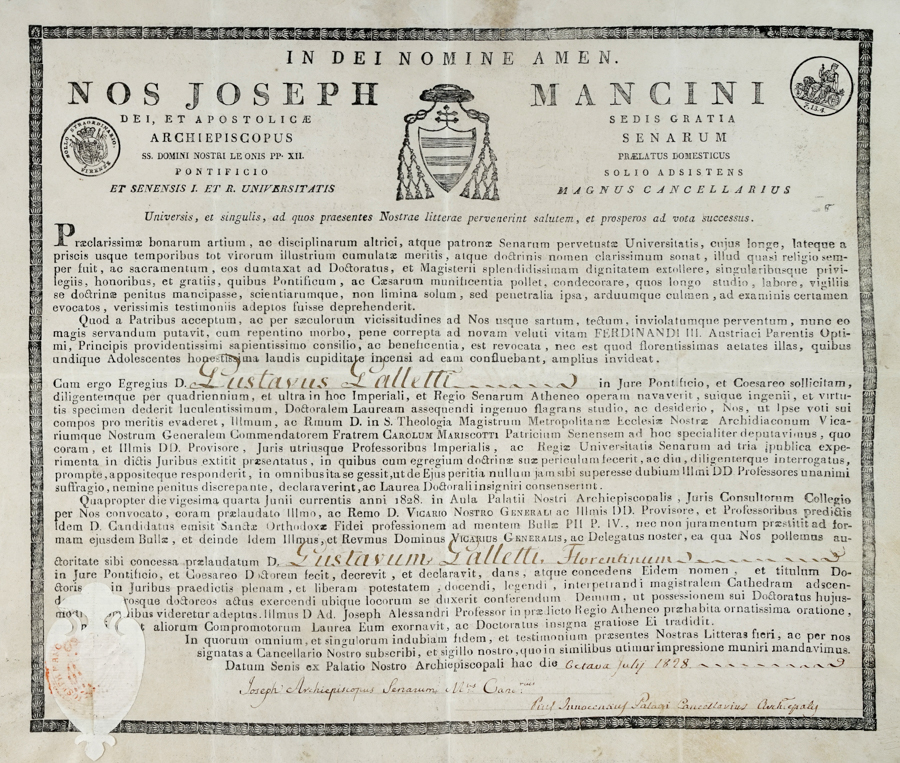 IN DEI NOMINE AMEN.
NOS JOSEPH MANCINI
DEI, ET APOSTOLICÆ SEDIS GRATIA
ARCHIEPISCOPUS SENARUM
SS. DOMINI NOSTRI LEONIS PP. XII. PRÆLATUS DOMESTICUS
PONTIFICIO SOLIO ADSISTENS
ET SENENSIS I. ET R. UNIVERSITATIS MAGNUS CANCELLARIUS
BOLLO STRAORDINARIO.
FIRENZE
Universis, et singulis, ad quos praesentes Nostrae litterae pervenerint salutem, et prosperos ad vota successus.
Præclarissimæ bonarum artium, ac disciplinarum altrici, atque patronæ Senarum pervetustæ Universitatis, cujus longe, lateque a
priscis usque temporibus tot virorum illustrium cumulatæ meritis, atque doctrinis nomen clarissimum sonat, illud quasi religio sem-
per fuit, ac sacramentum, eos dumtaxat ad Doctoratus, et Magisterii splendidissimam dignitatem extollere, singularibusque privi-
legiis, honoribus, et gratiis, quibus Pontificum, ac Cæsarum munificentia pollet, condecorare, quos longo studio, labore, vigiliis
se doctrinæ penitus mancipasse, scientiarumque, non limina solum, sed penetralia ipsa, arduumque culmen, ad examinis certamen
evocatos, verissimis testimoniis adeptos fuisse deprehenderit.
Quod a Patribus acceptum, ac per sæculorum vicissitudines ad Nos usque sartum, tectum, inviolatumque perventum, nunc eo
magis servandum putavit, cum repentino morbo, pene correpta ad novam veluti vitam FERDINANDI III. Austriaci Parentis Opti-
mi, Principis providentissimi sapientissimo consilio, ac beneficentia, est revocata, nec est quod florentissimas aetates illas, quibus
undique Adolescentes honestissima laudis cupiditate incensi ad eam confluebant, amplius invideat.
Cum ergo Egregius D. Gustavus Galletti in Jure Pontificio, et Coesareo sollicitam,
diligentemque per quadriennium, et ultra in hoc Imperiali, et Regio Senarum Atheneo operam navaverit, suique ingenii, et virtu-
tis specimen dederit luculentissimum, Doctoralem Lauream assequendi ingenuo flagrans studio, ac desiderio, Nos, ut Ipse voti sui
compos pro meritis evaderet, Illmum, ac Rmum D. in S. Theologia Magistrum Metropolitanæ Ecclesiæ Nostræ Archidiaconum Vica-
riumque Nostrum Generalem Commendatorem Fratrem CAROLUM MARISCOTTI Patricium Senensem ad hoc specialiter deputavimus, quo
coram, et Illmis DD. Provisore, Juris utriusque Professoribus Imperialis, ac Regiæ Universitatis Senarum ad tria publica expe-
rimenta in dictis Juribus extitit præsentatus, in quibus cum egregium doctrinæ suæ periculum fecerit, ac diu, diligenterque interrogatus,
prompte, appositeque responderit, in omnibus ita se gessit, ut de Ejus peritia nullum jam sibi superesse dubium Illmi DD Professores unanimi
suffragio, nemine penitus discrepante, declaraverint, ac Laurea Doctorali insigniri consenserint.
Quapropter die vigesima quarta Junii currentis anni 1828. in Aula Palatii Nostri Archiepiscopalis, Juris Consultorum Collegio
per Nos convocato, coram prælaudato Illmo, ac Remo D. VICARIO NOSTRO GENERALI ac Illmis DD. Provisore, et Professoribus prædictis
Idem D. Candidatus emisit Sanctæ Orthodoxæ Fidei professionem ad mentem Bullæ PII P. IV., nec non juramentum præstitit ad for-
mam ejusdem Bullæ, et deinde Idem Illmus, et Revmus Dominus VICARIUS GENERALIS, ac Delegatus noster, ea qua Nos pollemus au-
ctoritate sibi concessa prælaudatum D. Gustavum Galletti Florentinum
in Jure Pontificio, et Coesareo Doctorem fecit, decrevit, et declaravit, dans, atque concedens Eidem nomen, et titulum Do-
ctoris in Juribus praedictis plenam, et liberam potestatem, docendi, legendi, interpretandi magistralem Cathedram adscen-
rosque doctoreos actus exercendi ubique locorum se duxerit conferendum Demum, ut possessionem sui Doctoratus hujus-
mo ibus videretur adeptus. Illmus D Ad. Joseph Alessandri Professor in prædicto Regio Atheneo præhabita ornatissima oratione,
t aliorum Compromotorum Laurea Eum exornavit, ac Doctoratus insigna gratiose Ei tradidit.
In quorum omnium, et singulorum indubiam fidem, et testimonium præsentes Nostras Litteras fieri, ac per nos
signatas a Cancellario Nostro subscribi, et sigillo nostro, quo in similibus utimur impressione muniri mandavimus.
Datum Senis ex Palatio Nostro Archiepiscopali hac die Octava July 1828
Joseph Archiepiscopus Senarum
Palagi Cancellarius Archiepalis